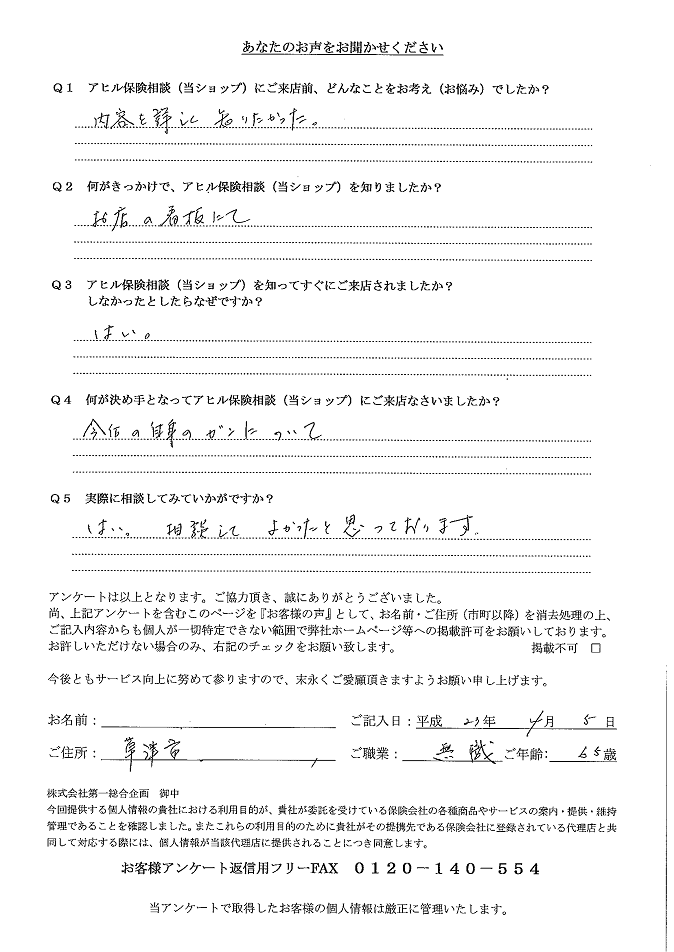 あなたのお声をお聞かせください
Q1 アヒル保険相談（当ショップ）にご来店前、どんなことをお考え（お悩み）でしたか？
内容を詳しく知りたかった。
Q2 何がきっかけで、アヒル保険相談（当ショップ）を知りましたか？
お店の看板にて
Q3 アヒル保険相談（当ショップ）を知ってすぐにご来店されましたか？
しなかったとしたらなぜですか？
はい。
Q4 何が決め手となってアヒル保険相談（当ショップ）にご来店なさいましたか？
今后の自身のガンについて
Q5 実際に相談してみていかがですか？
はい。 相談して よかったと思っております。
アンケートは以上となります。ご協力頂き、誠にありがとうございました。
尚、上記アンケートを含むこのページを『お客様の声』として、お名前・ご住所（市町以降）を消去処理の上、
ご記入内容からも個人が一切特定できない範囲で弊社ホームページ等への掲載許可をお願いしております。
お許しいただけない場合のみ、右記のチェックをお願い致します。 掲載不可 □
今後ともサービス向上に努めて参りますので、末永くご愛顧頂きますようお願い申し上げます。
お名前： ご記入日：平成 23年 4月 5日
ご住所： 草津市 ご職業： 無職 ご年齢： 65歳
株式会社第一総合企画 御中
今回提供する個人情報の貴社における利用目的が、貴社が委託を受けている保険会社の各種商品やサービスの案内・提供・維持
管理であることを確認しました。またこれらの利用目的のために貴社がその提携先である保険会社に登録されている代理店と共
同して対応する際には、個人情報が当該代理店に提供されることにつき同意します。
お客様アンケート返信用フリーFAX 0120－140－554
当アンケートで取得したお客様の個人情報は厳正に管理いたします。